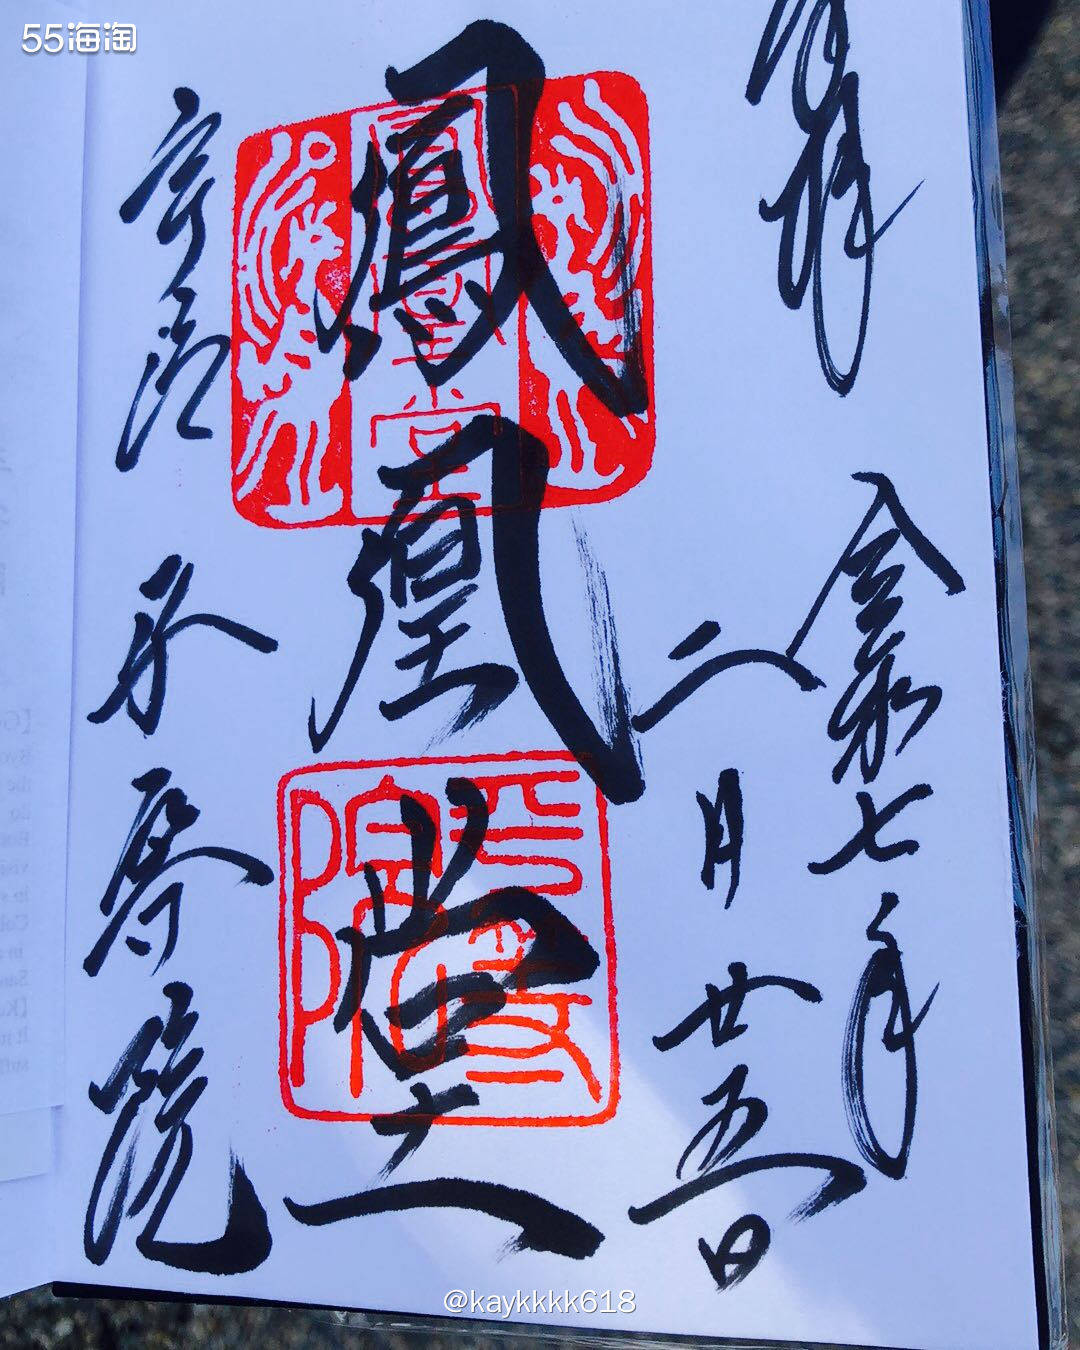 55海淘
奉拝
令和七年
二月廿五日
鳳凰堂
鳳凰堂
平等院
宇治
平等院
@kaykkkk618